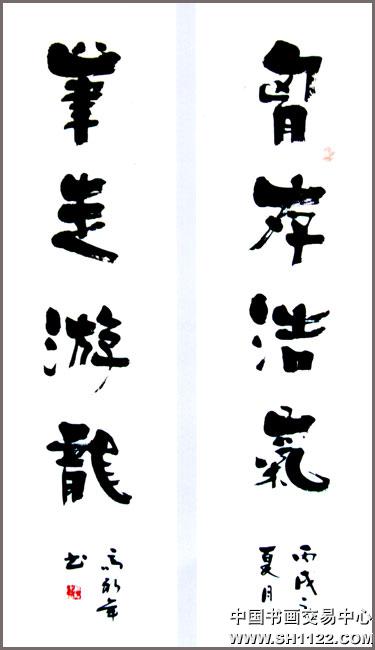 胷存浩氣
丙戌之
夏月
筆走游龍
年
书
中国书画交易中心
www.SH1122.com